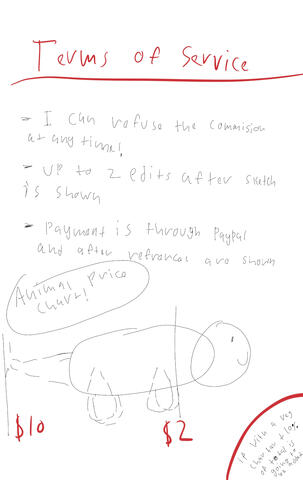 Terms of Service
- I can refuse the commision
at any time!
- UP to 2 edits after sketch
is shown
- Payment is through Paypal
and after refrances are shown
Animal price
chart!
$10
$2
If with a
charcter + 10%
of total is
going to
be added